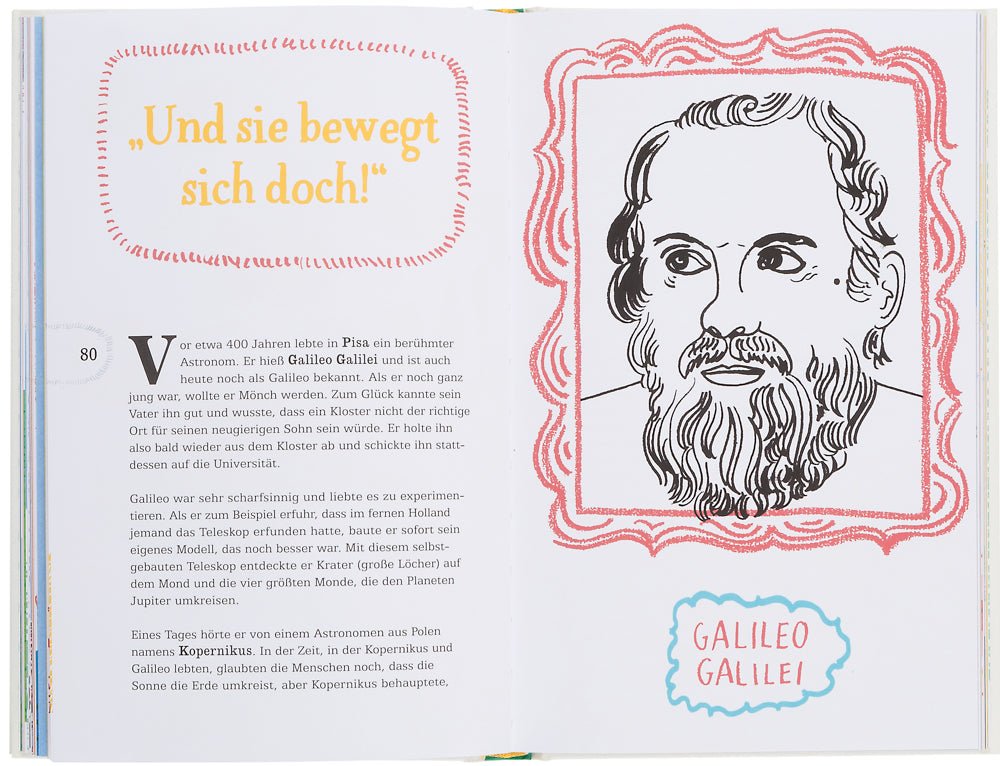 „Und sie bewegt
sich doch!“
80
Vor etwa 400 Jahren lebte in Pisa ein berühmter
Astronom. Er hieß Galileo Galilei und ist auch
heute noch als Galileo bekannt. Als er noch ganz
jung war, wollte er Mönch werden. Zum Glück kannte sein
Vater ihn gut und wusste, dass ein Kloster nicht der richtige
Ort für seinen neugierigen Sohn sein würde. Er holte ihn
also bald wieder aus dem Kloster ab und schickte ihn statt-
dessen auf die Universität.
Galileo war sehr scharfsinnig und liebte es zu experimen-
tieren. Als er zum Beispiel erfuhr, dass im fernen Holland
jemand das Teleskop erfunden hatte, baute er sofort sein
eigenes Modell, das noch besser war. Mit diesem selbst-
gebauten Teleskop entdeckte er Krater (große Löcher) auf
dem Mond und die vier größten Monde, die den Planeten
Jupiter umkreisen.
Eines Tages hörte er von einem Astronomen aus Polen
namens Kopernikus. In der Zeit, in der Kopernikus und
Galileo lebten, glaubten die Menschen noch, dass die
Sonne die Erde umkreist, aber Kopernikus behauptete,
GALILEO
GALILEI